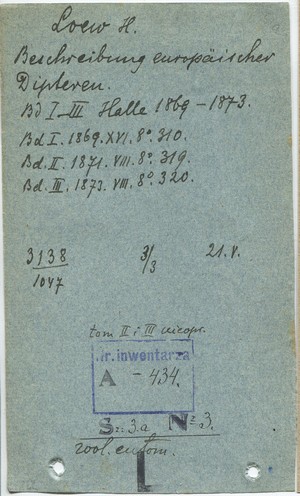 Loew H.
Beschreibung europäischer
Dipteren.
Bd I–III Halle 1869–1873.
Bd I. 1869. XVI. 8º. 310.
Bd. II. 1871. VIII. 8º. 319.
Bd. III. 1873. VIII. 8º. 320.
3138 3/3 21.V.
1047
tom II i III nieopr.
Nr. inwentarza
A – 434.
S. 3.a. № 3.
zool. entom.